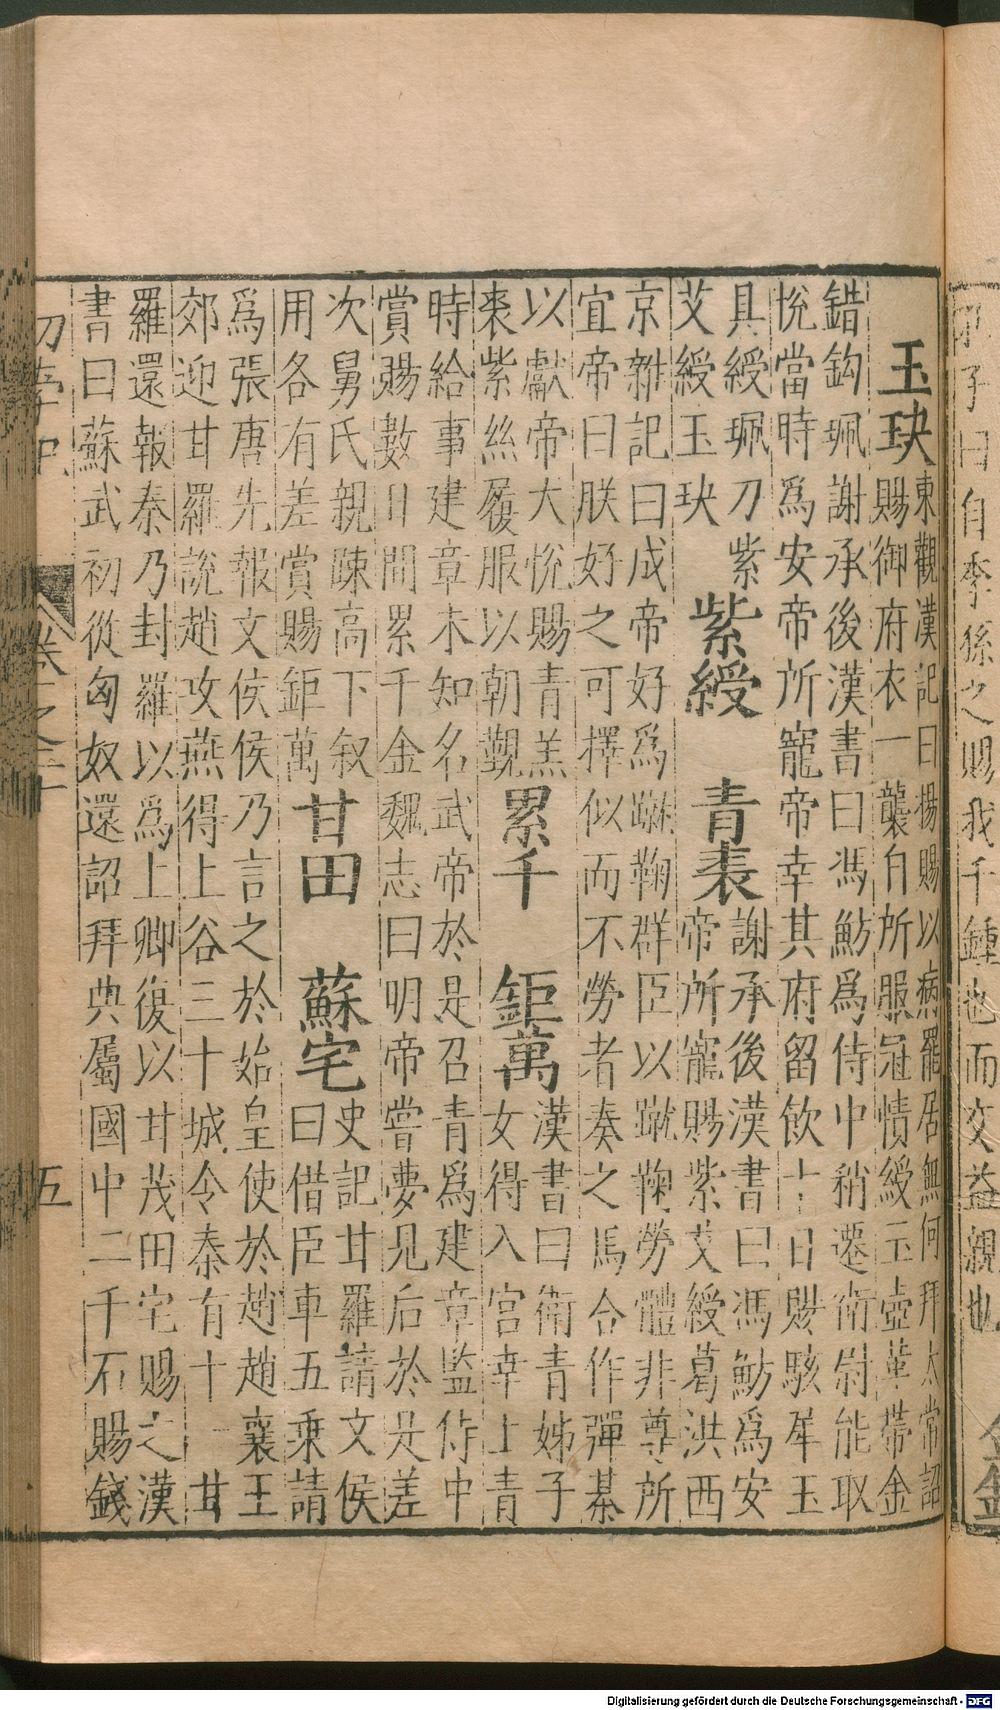 子曰自季孫之賜我千鍾也而交益親也
玉玦
東觀漢記曰楊賜以病罷居無何拜太常詔
賜御府衣一襲自所服冠幘綬玉壺革帶金
錯鈎珮謝承後漢書曰馮魴為侍中稍遷衛尉能取
悅當時為安帝所寵帝幸其府留飲十日賜駮犀玉
具綬珮刀紫
艾綬玉玦
紫綬
青裘
謝承後漢書曰馮魴為安
帝所寵賜紫艾綬葛洪西
京雜記曰成帝好為蹴鞠群臣以蹴鞠勞體非尊所
宜帝曰朕好之可擇似而不勞者奏之馬合作彈棊
以獻帝大悅賜青羔
裘紫絲履服以朝覲
累千
鉅萬
漢書曰衛青姊子
女得入宮幸上青
時給事建章未知名武帝於是召青為建章監侍中
賞賜數日間累千金魏志曰明帝嘗夢見后於是差
次舅氏親踈高下叙
用各有差賞賜鉅萬
甘田
蘇宅
史記甘羅請文侯
曰借臣車五乘請
為張唐先報文侯侯乃言之於始皇使於趙趙襄王
郊迎甘羅說趙攻燕得上谷三十城令秦有十一甘
羅還報秦乃封羅以為上卿復以甘茂田宅賜之漢
書曰蘇武初從匈奴還詔拜典屬國中二千石賜錢
初學記
五
Digitalisierung gefördert durch die Deutsche Forschungsgemeinschaft - DFG